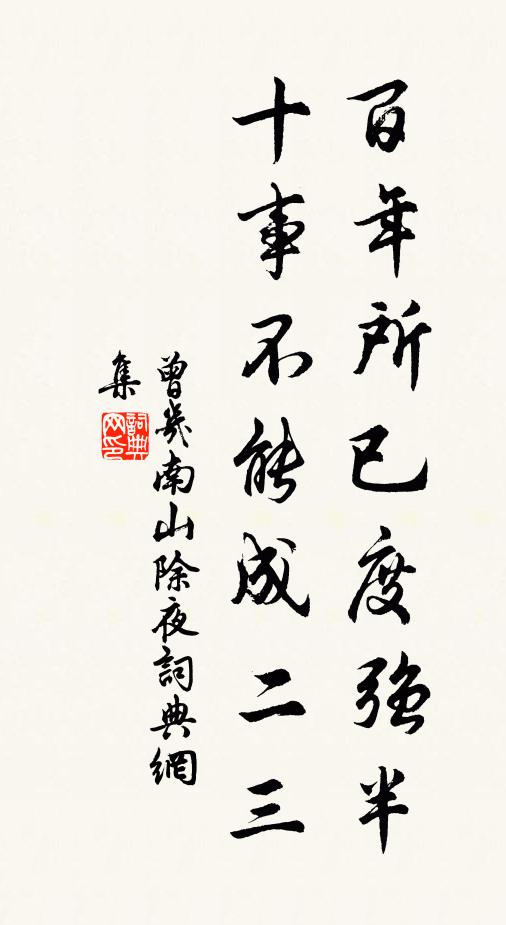 百年所已度強半
十事不能成二三
曾幾南山除夜詞典網
集
詞典網印